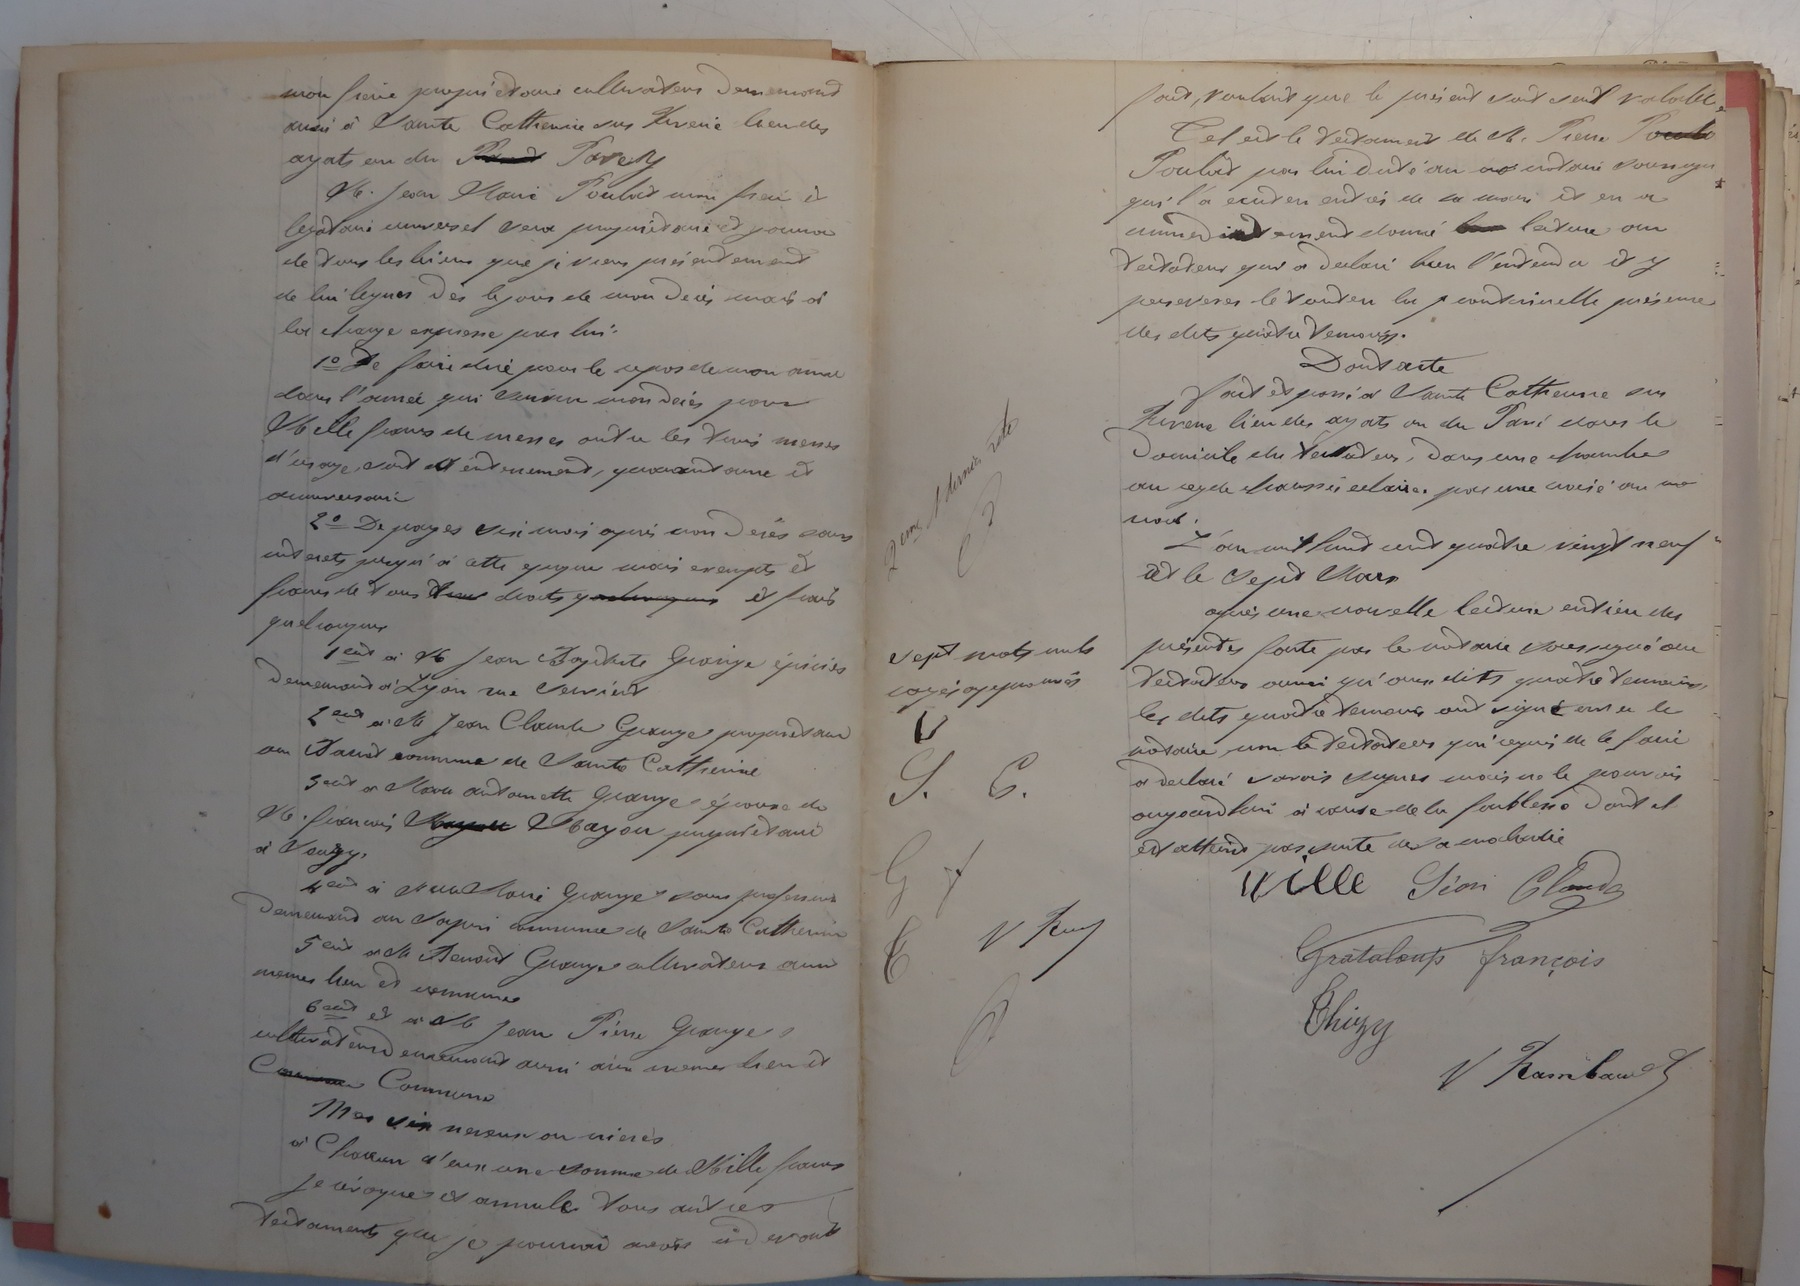 mon frère propriétaire cultivateur demeurant
aussi à Sainte Catherine sus Riverie lieu des
ayats ou du Pavé
M. Jean Marie Poulat mon frère et
légataire universel sera propriétaire et jouira
de tous les biens que je viens présentement
de lui léguer dès le jour de mon décès mais à
la charge expresse par lui:
1º De faire dire pour le repos de mon ame
dans l'année qui suivra mon décès pour
Mille francs de messes outre les trois messes
d'usage, soit d'enterrement, quarantaine et
anniversaire
2º De payer six mois après mon décès sans
interets jusqu'à cette époque mais exempts et
francs de tous droits et frais
quelconques
1ent à M Jean Baptiste Grange épicier
demeurant à Lyon rue Servient
2ent à M Jean Claude Grange propriétaire
au commune de Sainte Catherine
3ent à Marie antoinette Grange épouse de
M. françois Mayou propriétaire
à
4ent à Melle Marie Grange sans profession
demeurant au Sapin commune de Sainte Catherine
5ent à M Benoit Grange cultivateur aux
memes lieu et commune
6ent et à M Jean Pierre Grange
cultivateur demeurant aussi aux memes lieu et
Commune
Mes six neveux ou nièces
à Chacun d'eux une somme de Mille francs
Je révoque et annule tous autres
testaments que je pourrai avoir ci devant
2eme & dernier rôle
sept mots nuls
rayés approuvés
V
S. C.
G f
C
V Ray
fait, voulant que le présent soit seul valable.
Tel est le testament de M. Pierre
Poulat par lui dicté au notaire soussigné
qui l'a écrit en entier de sa main et en a
immédiatement donné lecture au
testateur qui a déclaré bien l'entendre et y
persévérer le tout en la continuelle présence
des dits quatre temoins.
Dont acte
fait et passé à Sainte Catherine sus
Riverie lieu des ayats ou du Pavé dans le
Domicile du testateur, dans une chambre
au rez de chaussée eclairée par une croisée au
nord.
L'an mil huit cent quatre vingt neuf
et le sept Mars
après une nouvelle lecture entière des
présentes faite par le notaire soussigné au
testateur ainsi qu'aux dits quatre temoins,
les dits quatre temoins ont signé avec le
notaire non le testateur qui requis de le faire
a déclaré savoir signer mais ne le pouvoir
aujourd'hui à cause de la faiblesse dont il
est atteint par suite de sa maladie
Ville Claude
Grataloup françois
Thizy
V Rambaud